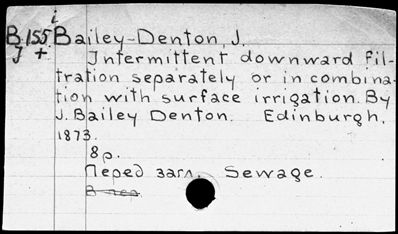 i
B 155 Bailey-Denton, J.
J + Intermittent downward fil-
tration separately or in combina-
tion with surface irrigation. By
J. Bailey Denton. Edinburgh,
1873.
8p.
Перед загл. Sewage.